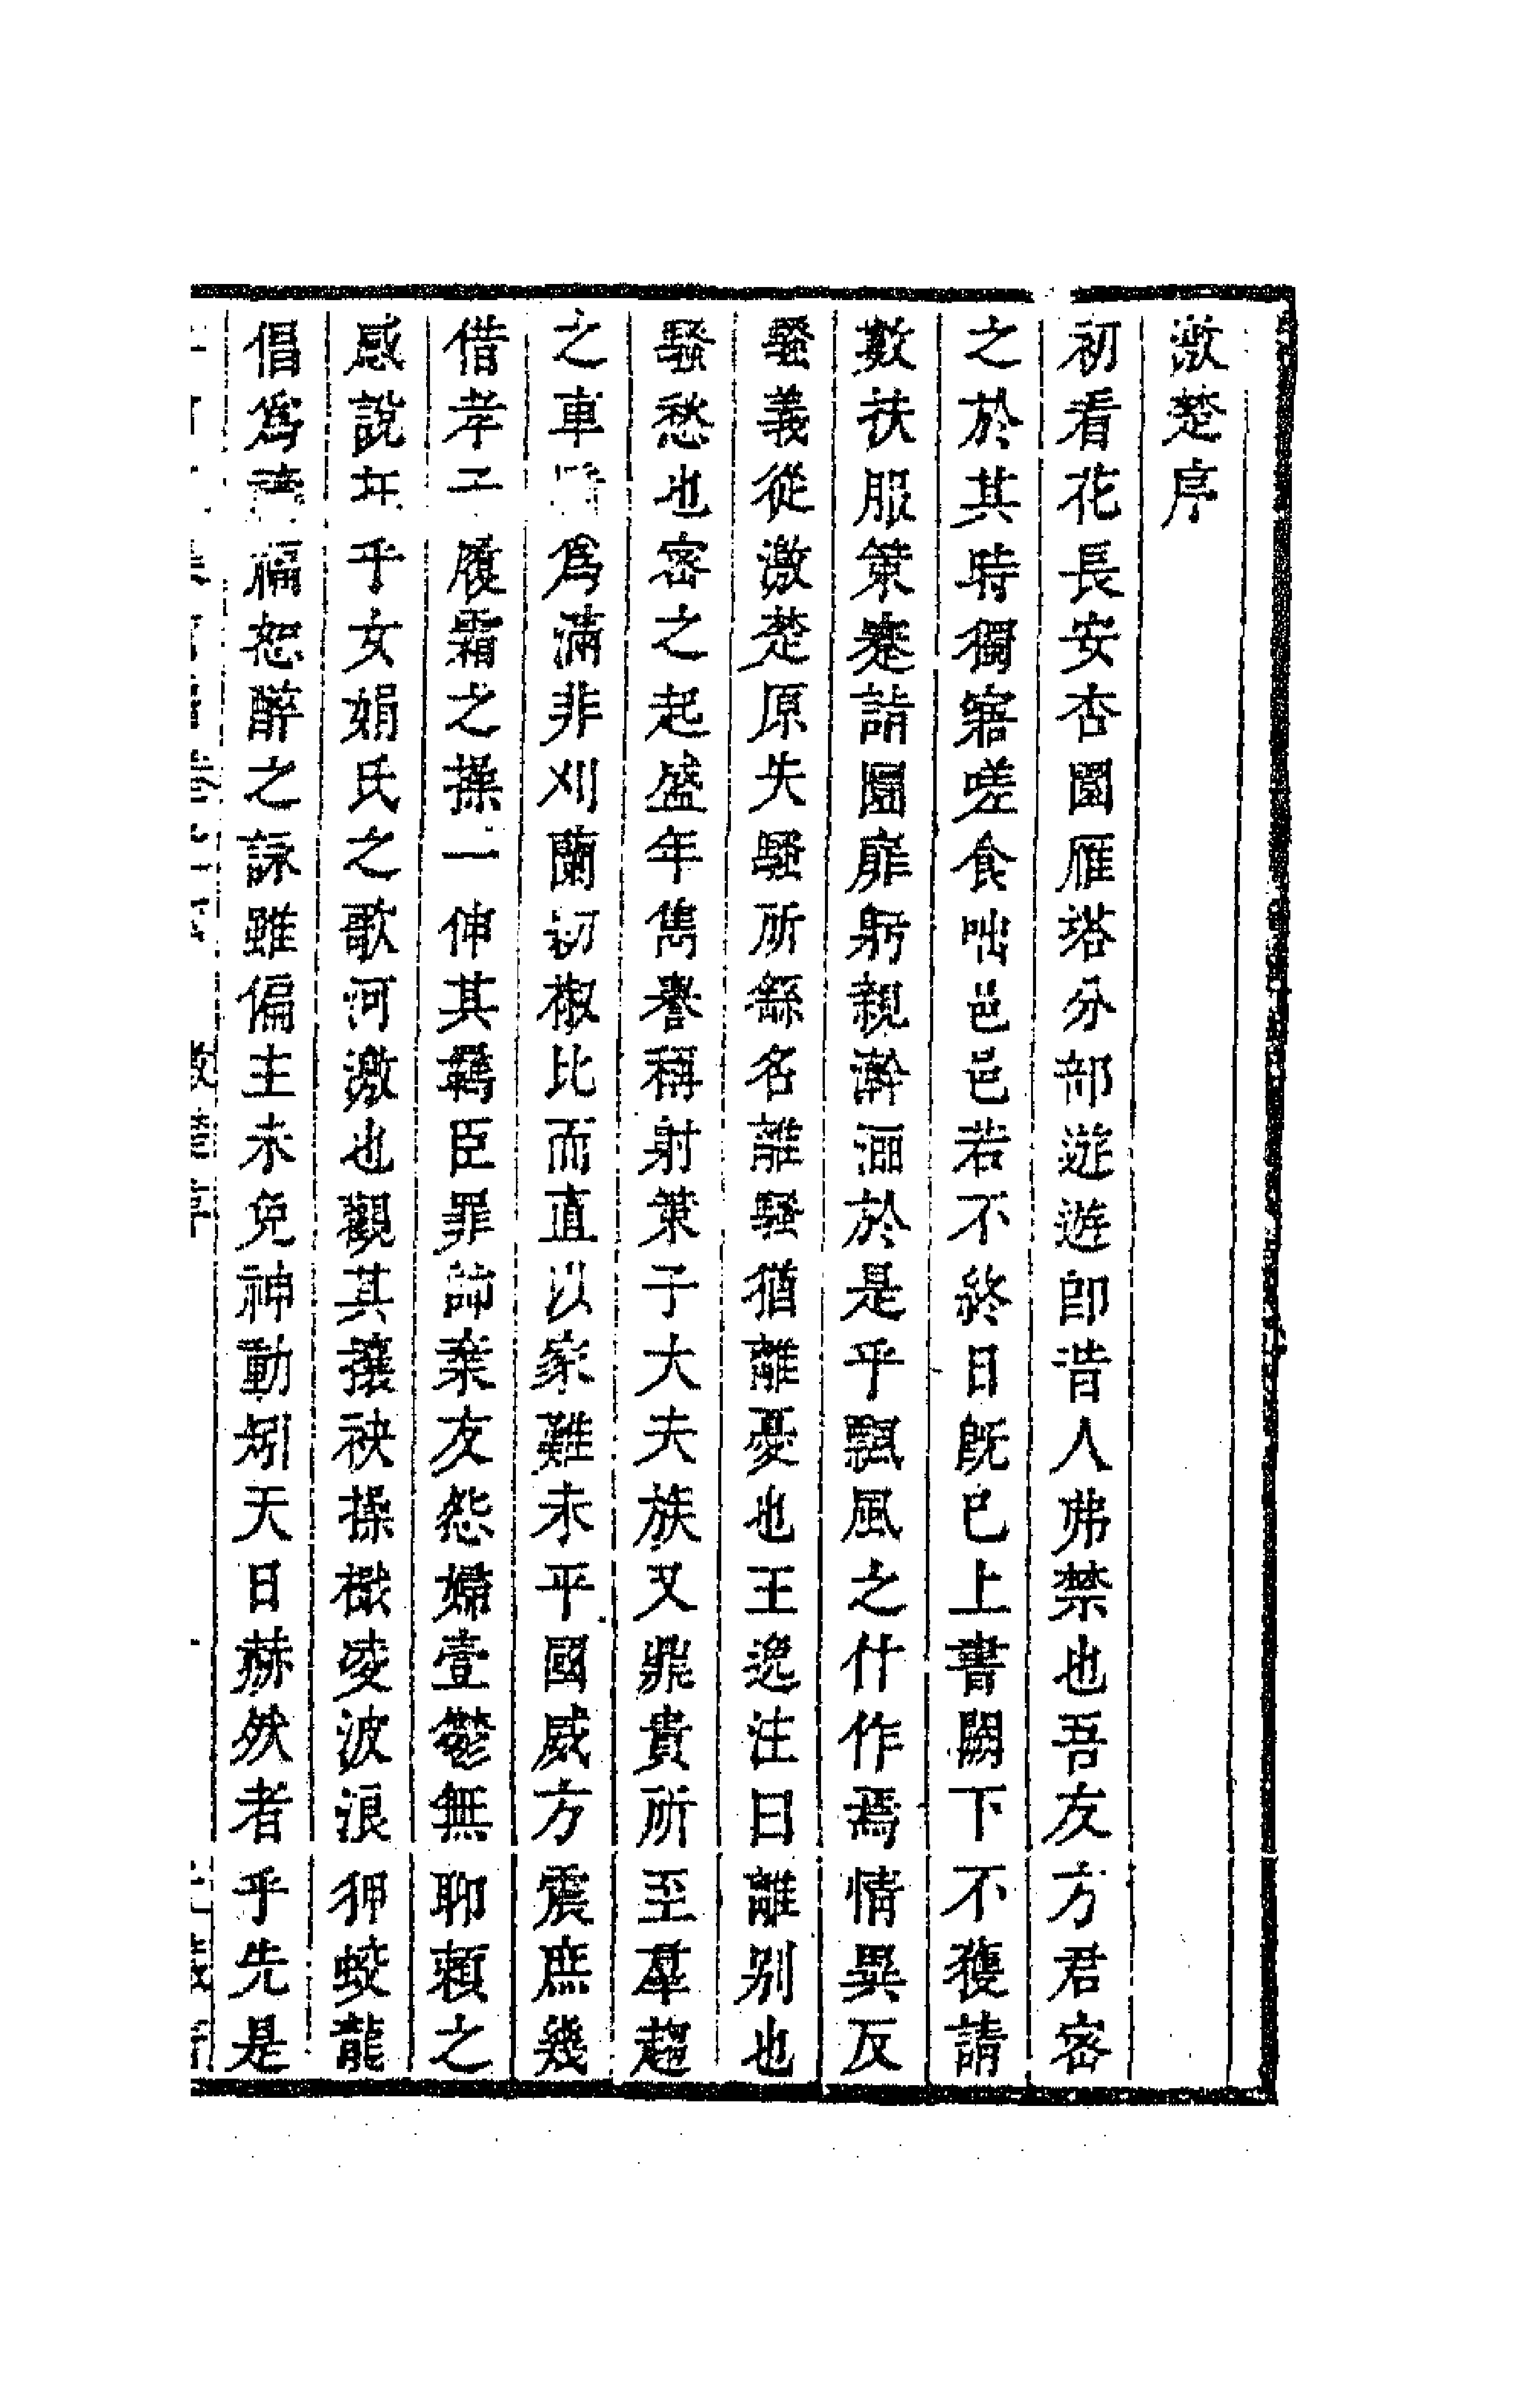 激楚序
初看花長安杏園雁塔分部遊遊卽昔人弗禁也吾友方君密
之於其時獨寤嗟食咄邑邑若不終日旣已上書闕下不獲請
數扶服策蹇詣圜扉躬親澣洒於是乎飄風之什作焉情異反
騷義從激楚原夫騷所繇名離騷猶離憂也王逸注曰離別也
騷愁也密之起盛年雋譽稱射策子大夫族又鼎貴所至羣趨
之車 爲滿非刈蘭初椒比而直以家難未平國威方震庶幾
借孝子履霜之操一伸其羈臣罪諦棄友怨婦壹鬱無聊賴之
感說在乎女娟氏之歌河激也觀其攘袂操檝凌波浪狎蛟龍
倡爲 福恕醉之詠雖偏主未免神動矧天日赫然者乎先是
激楚序